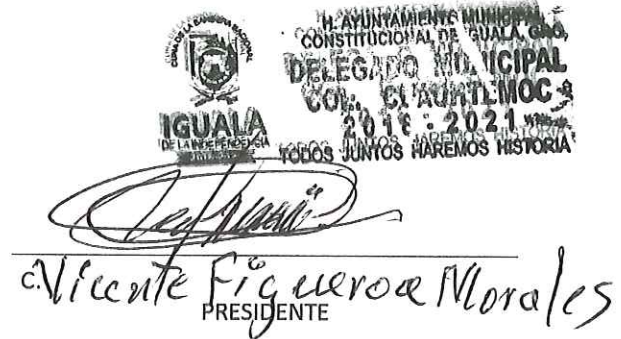 CUNA DE LA BANDERA NACIONAL
IGUALA
DE LA INDEPENDENCIA
H. AYUNTAMIENTO MUNICIPAL
CONSTITUCIONAL DE IGUALA, GRO,
DELEGADO MUNICIPAL
COL. CUAUHTEMOC
2018 - 2021
TODOS JUNTOS HAREMOS HISTORIA
C. Vicente Figueroa Morales
PRESIDENTE